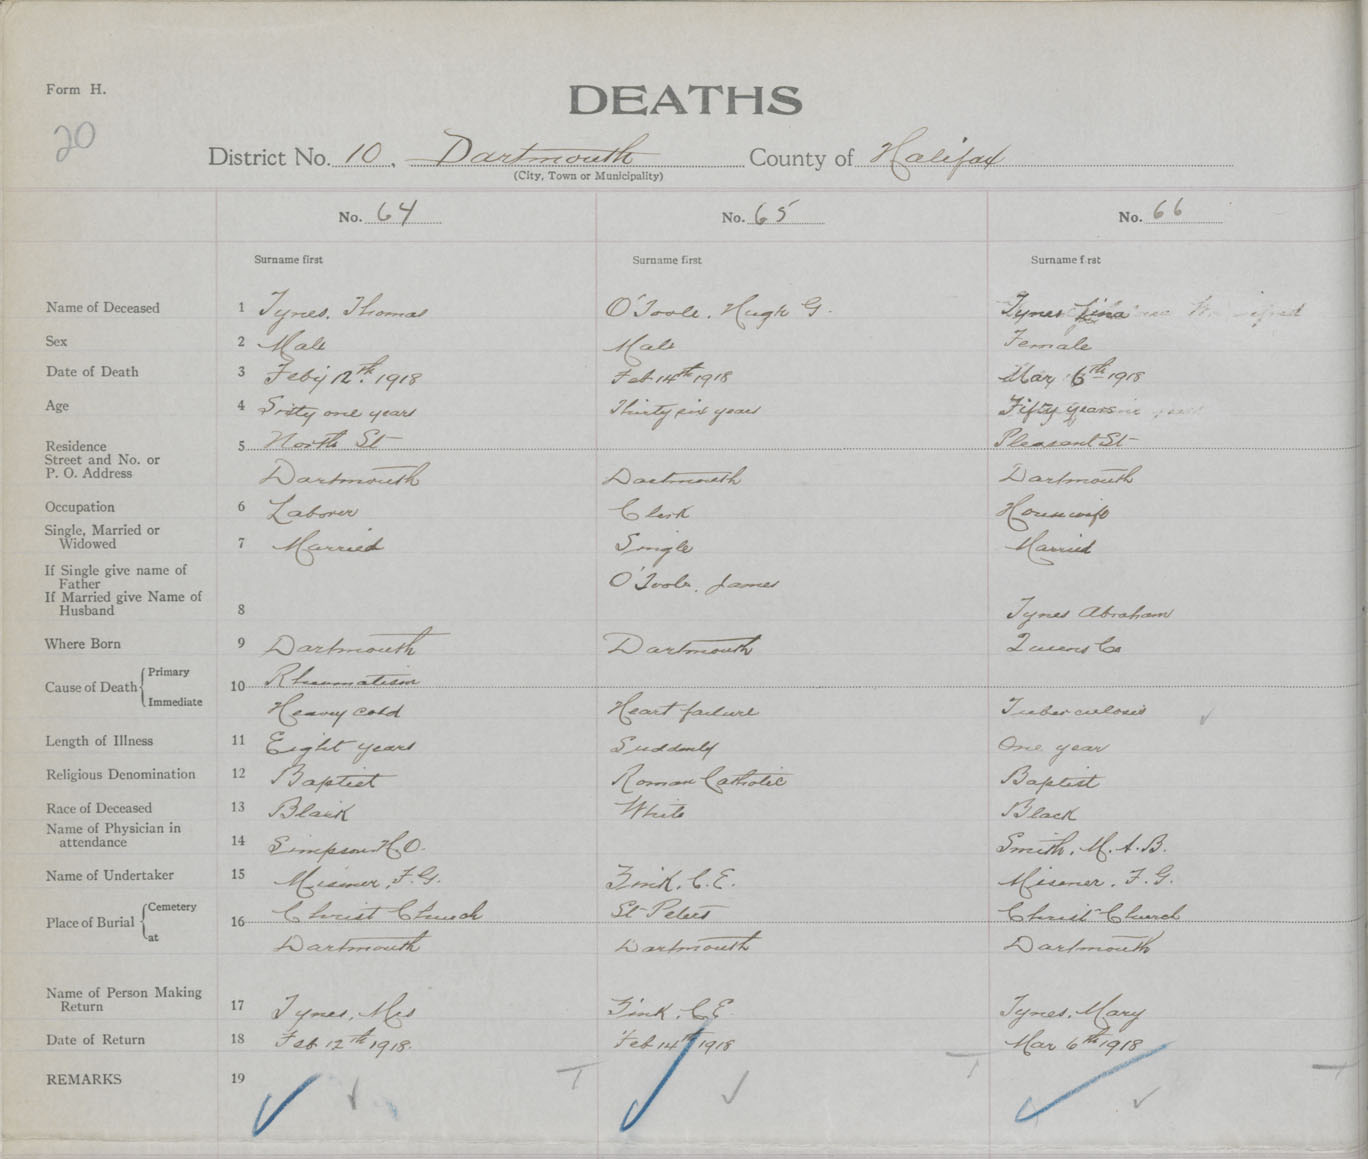 Form H.
DEATHS
20
District No. 10, Dartmouth County of Halifax
(City, Town or Municipality)
No. 64 No. 65 No. 66
Surname first Surname first Surname first
Name of Deceased 1 Tynes, Thomas O'Toole, Hugh G. Tynes Lina
Sex 2 Male Male Female
Date of Death 3 Feby 12th 1918 Feb 14th 1918 Mar 6th 1918
Age 4 Sixty one years Thirty six years Fifty years
Residence 5 North St Pleasant St
Street and No. or
P. O. Address Dartmouth Dartmouth Dartmouth
Occupation 6 Laborer Clerk Housewife
Single, Married or
Widowed 7 Married Single Married
If Single give name of
Father O'Toole, James
If Married give Name of
Husband 8 Tynes Abraham
Where Born 9 Dartmouth Dartmouth Queens Co
Cause of Death Primary 10 Rheumatism
Immediate Heavy cold Heart failure Tuberculosis
Length of Illness 11 Eight years Suddenly One year
Religious Denomination 12 Baptist Roman Catholic Baptist
Race of Deceased 13 Black White Black
Name of Physician in
attendance 14 Simpson H.O. Smith, M. A. B.
Name of Undertaker 15 Misener, F.G. Zink, C.E. Misener, F.G.
Place of Burial Cemetery 16 Christ Church St Peters Christ Church
at Dartmouth Dartmouth Dartmouth
Name of Person Making
Return 17 Tynes, Mrs Zink, C E. Tynes, Mary
Date of Return 18 Feb 12th 1918. Feb 14th 1918 Mar 6th 1918
REMARKS 19